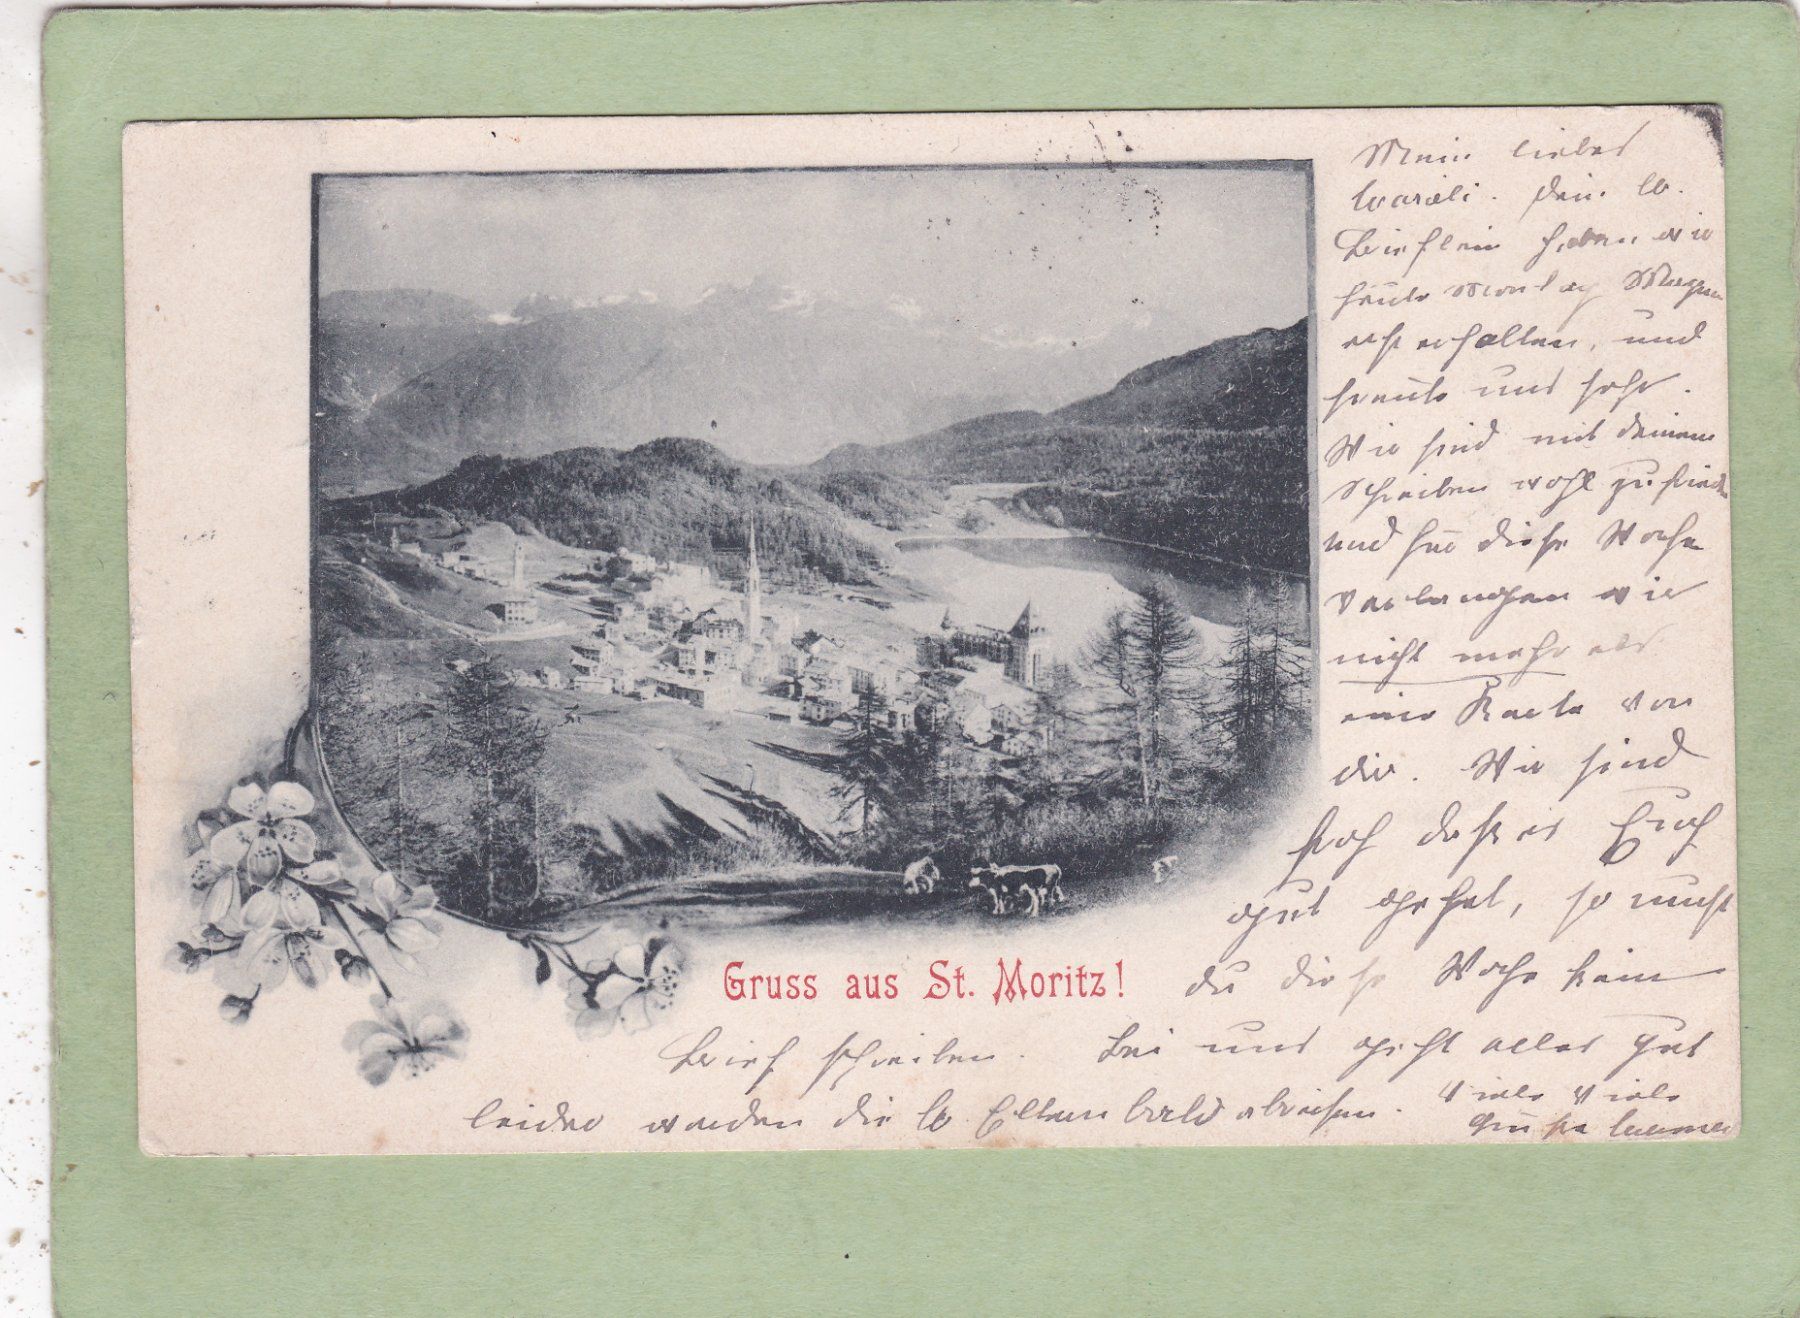 Mein liebes
Dein lb.
Brieflein haben wir
heute Montag Morgen
erst erhalten, und
freute uns sehr.
Wir sind mit deinem
Schreiben wohl zufrieden
und für diese Woche
verlangen wir
nicht mehr als
eine Karte von
dir. Wir sind
froh dass es Euch
gut gehet, so musst
du diese Woche kein
Gruss aus St. Moritz!
Brief schreiben. Bei uns geht alles gut
leider werden die lb Eltern bald abreisen. Viele Viele
Grüsse